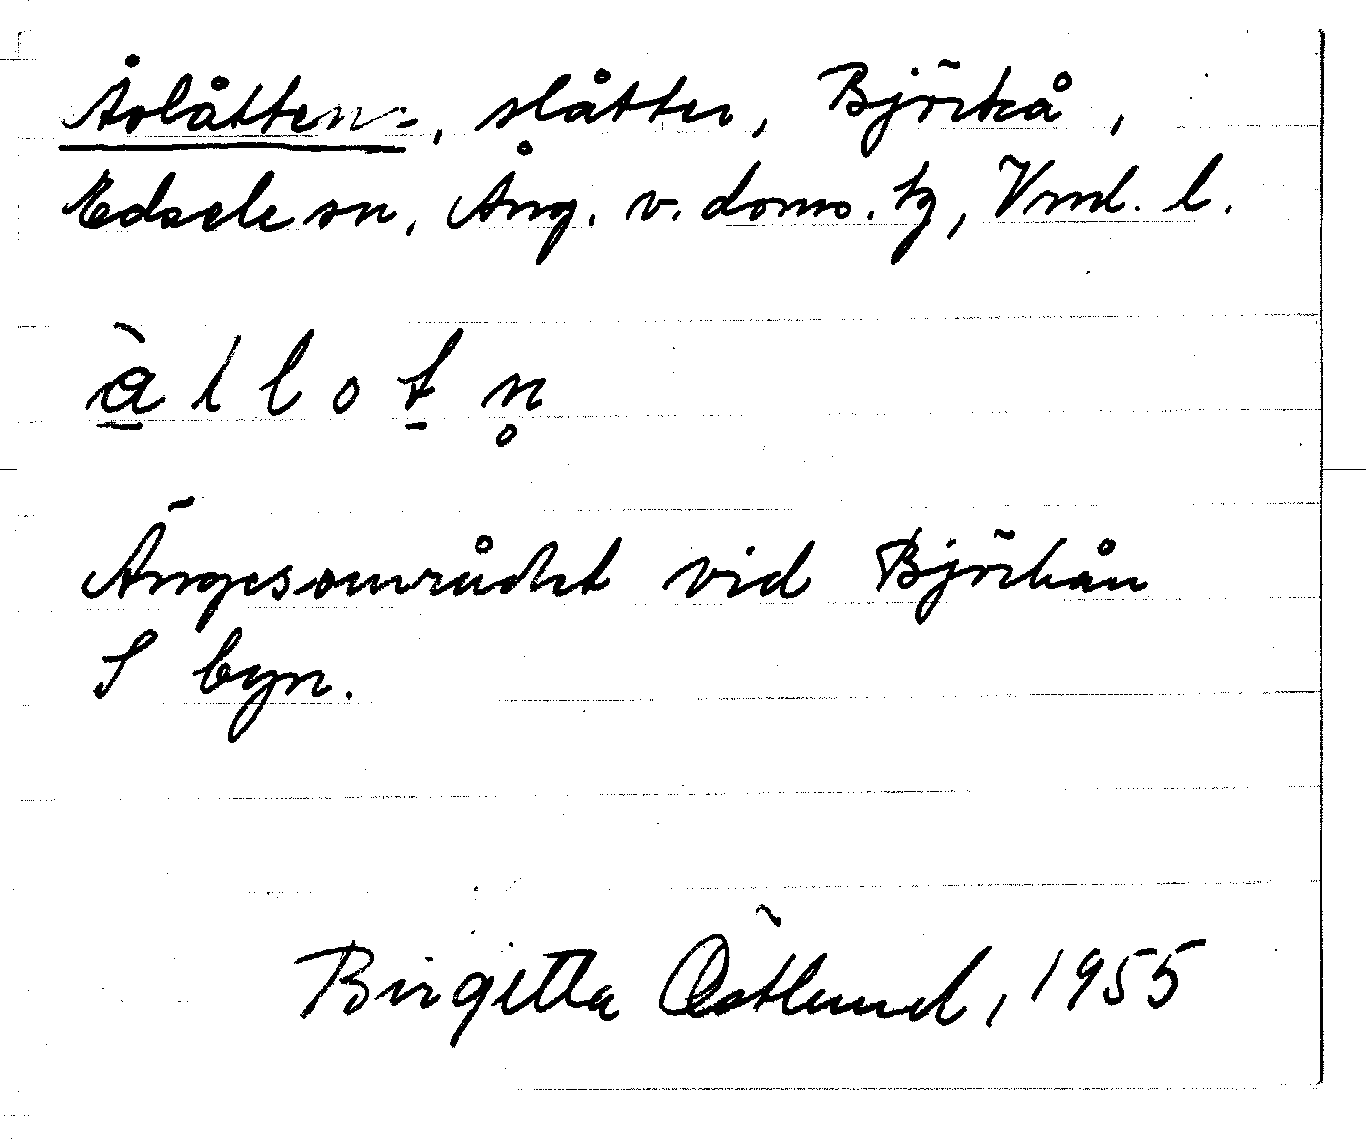 Åslåtten, slåtter, Björkå,
Edsele sn, Ång. v. doms. tg, Vml. l.
à l l o t n̥
Ängsområdet vid Björkån
S byn.
Birgitta Östlund, 1955